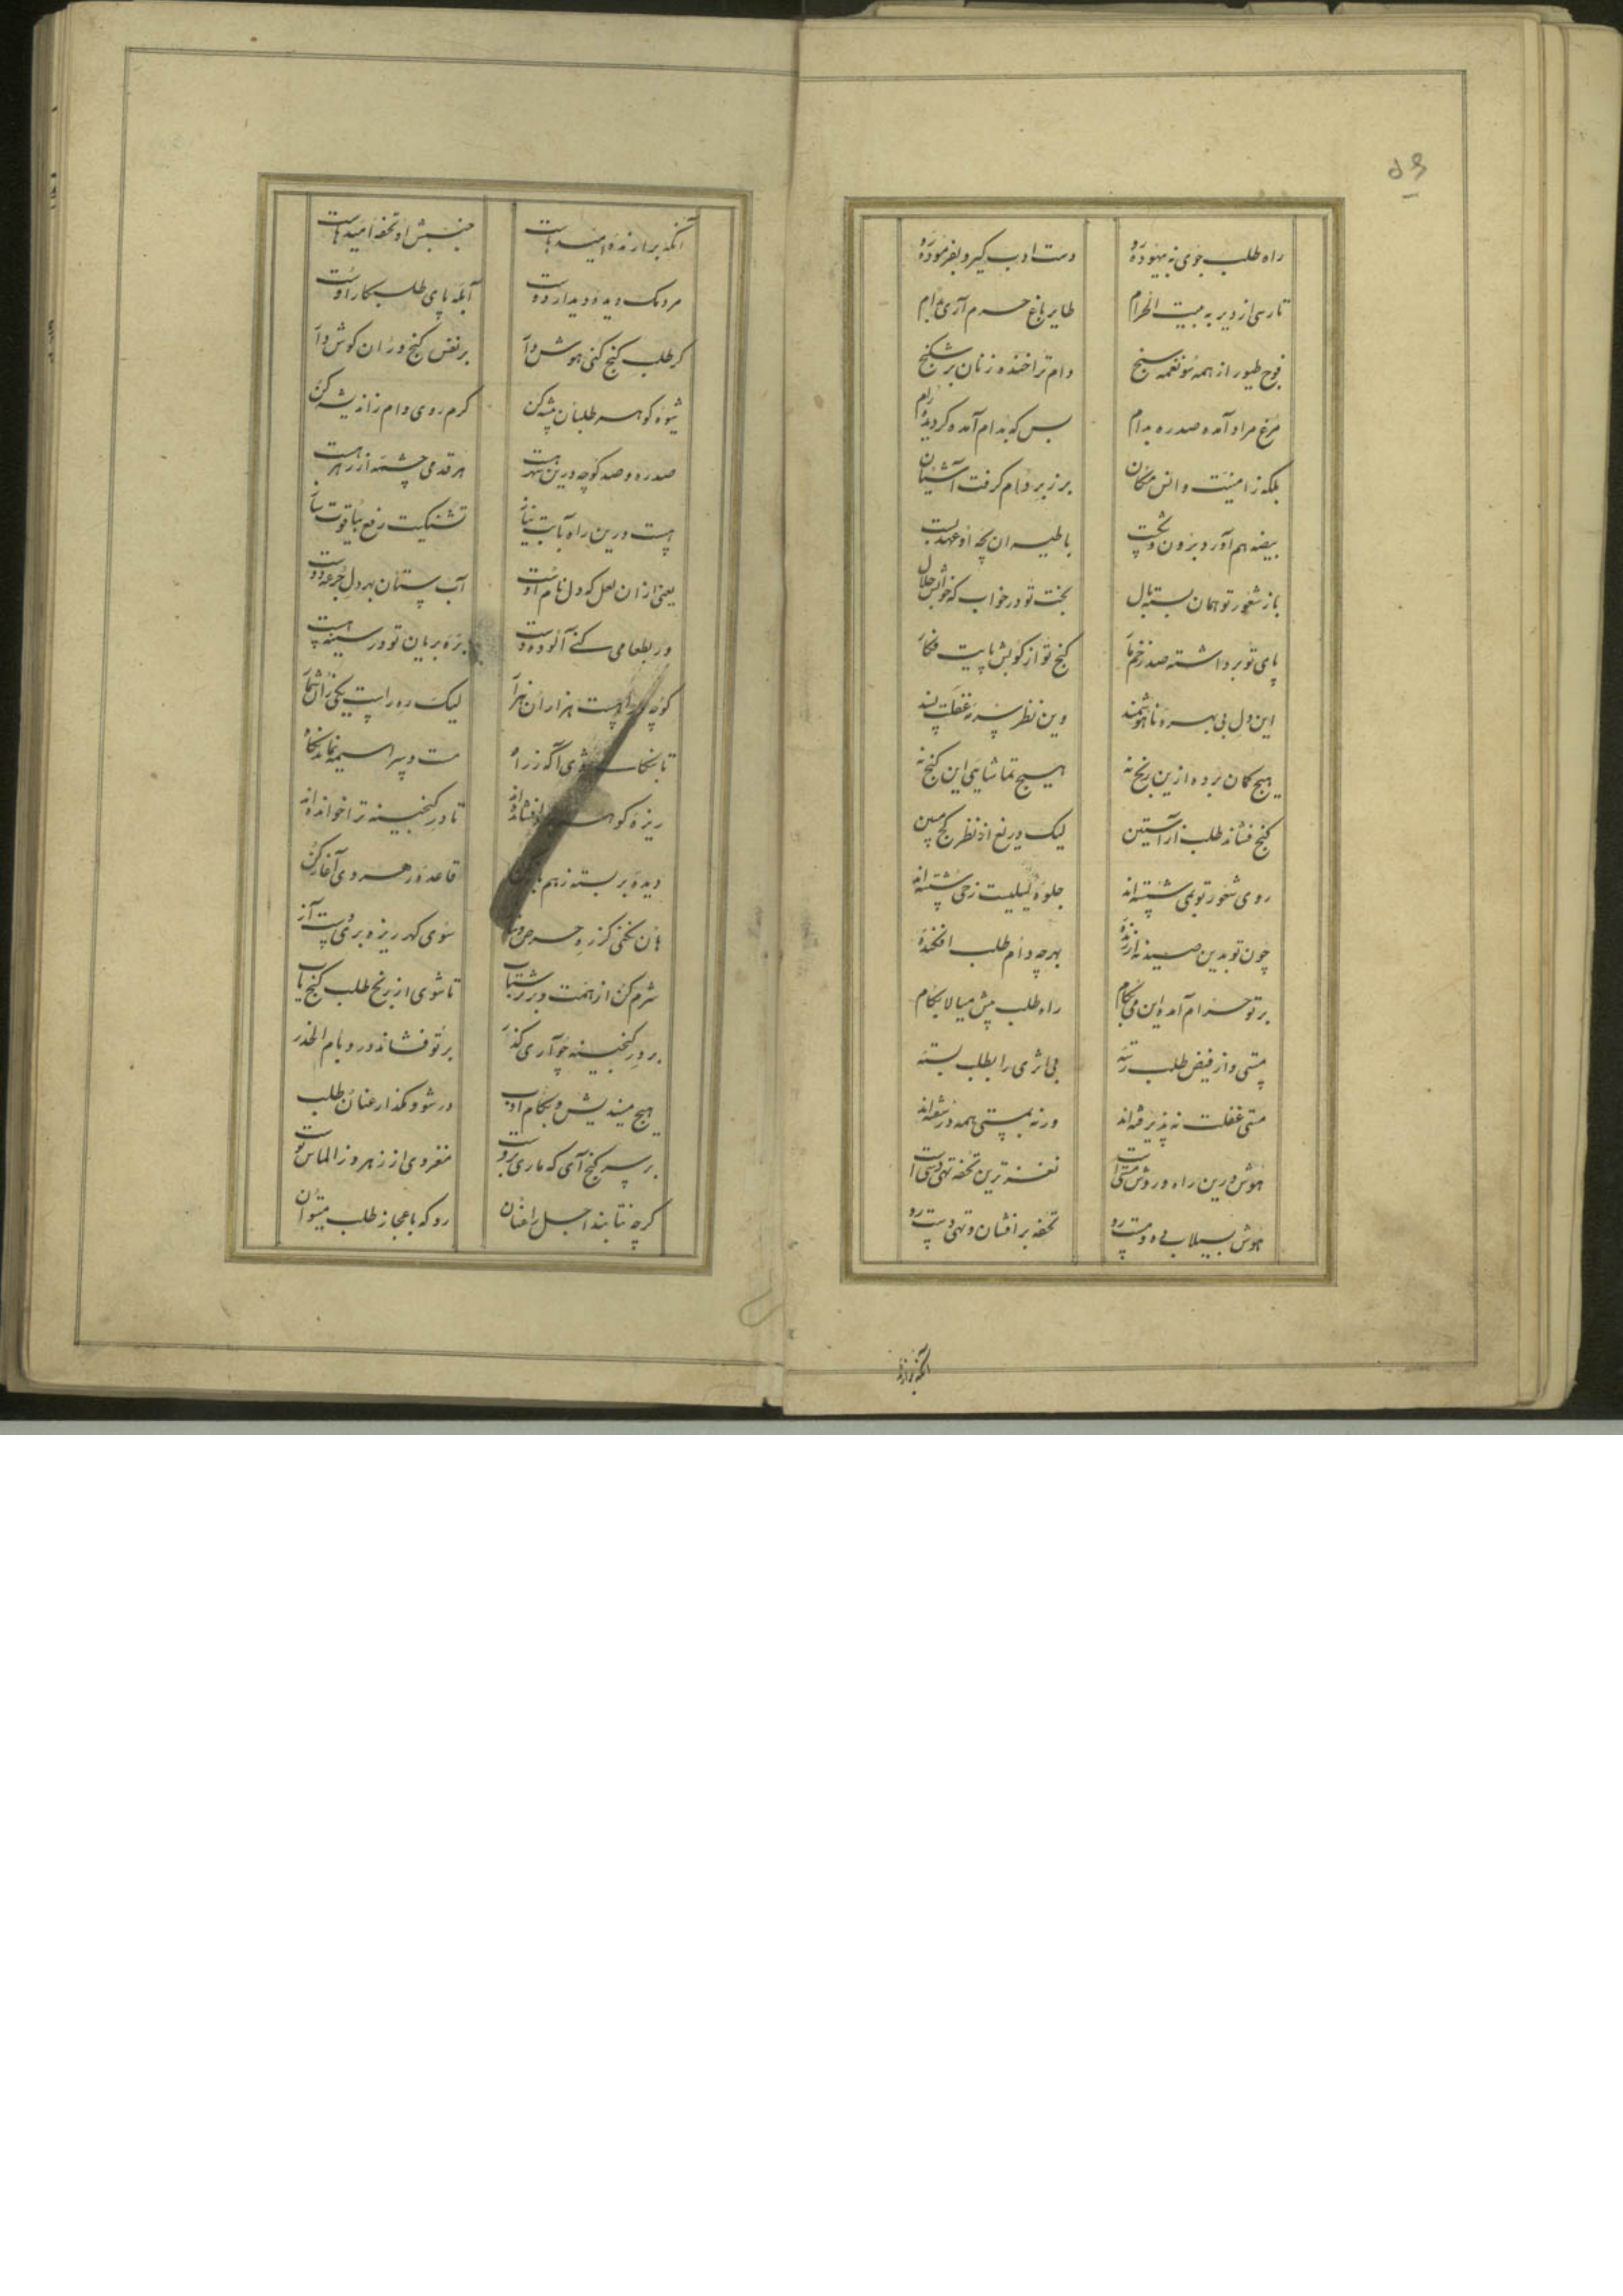 ۵۶
راه طلب جوی نه بیهوده رو دست ادب گیر و بفرموده رو
تا رسی از دیر به بیت الحرام طایر باغ حرم آری بدام
فوج طیور از همه سو نغمه سنج دام ترا خنده زنان بر شکنج
مرغ مراد آمده صد ره بدام بس که بدام آمده گردیده رام
بلکه ز امنیت و انس مکان بر زبر دام گرفت آشیان
بیضه هم آورد برون و با طیران بچه او عهد بست
باز شعور تو همان بسته بال بخت تو در خواب که خوابش حلال
پای تو برداشته صد زخم گنج تو از کوبش پایت فکار
این دل بی بهره ناهوشمند وین نظر غفلت پسند
هیچ گمان برده ازین رنج نه هیچ تماشایی این گنج نه
گنج فشاند طلب از آستین لیک دریغ از نظر گنج بین
روی شعور تو بمی شسته‌اند جلوه لیلیت ز حی شسته‌اند
چون تو بدین صید نه ارزنده بهر چه دام طلب افکنده
بر تو حرام آمده این می بجام راه طلب پیش میالا بگام
مستی و از فیض طلب رسته بی اثری را بطلب بسته
مستی غفلت نه پذیرفته‌اند ورنه بمستی همه در سفته‌اند
هوش درین راه و روش مستی است نغزترین تحفه تهی دستی است
هوش بسیلاب ده و مست رو تحفه برافشان و تهی دست رو
آنکه برازنده
آنکه برازنده امیدهاست جنبش او تحفه امیدهاست
مردمک دیده دیدار دوست آبله پای طلبکار اوست
گر طلب گنج کنی هوش دار بر نفس گنج وران گوش دار
شیوه گوهر طلبان پیشه کن گرم روی وام ز اندیشه کن
صد ره و صد کوچه درین شهر هست هر قدمی چشمه از زهر هست
هست درین راه تشنگیت رفع بیاقوت
یعنی از ان لعل که دل نام اوست آب پستان بهر دل جرعه دوست
ور بطعامی کنی آلوده دست بره بریان تو در سینه هست
کوچه و راهست هزاران هزار لیک ره راست یکی زان شمار
تا شوی آگه ز راه مست و سراسیمه نماند نگاه
ریزه گوهر افشانده‌اند تا در گنجینه ترا خوانده‌اند
دیده بر بسته ز هم باز کن قاعده رهروی آغاز کن
هان نکنی کز ره حرص و نیاز سوی گهر ریزه بری دست آز
شرم کن از همت و بر رو شتاب تا شوی از رنج طلب گنج یاب
بر در گنجینه چو آری گذر بر تو فشاند در و بام الحذر
هیچ میندیش و بگام ادب در شو و مگذار عنان طلب
بر سر گنج آی که ماری بروست مغز وی از زهر وز الماس پوست
گرچه نتابند اجل را عنان رو که باعجاز طلب میتوان